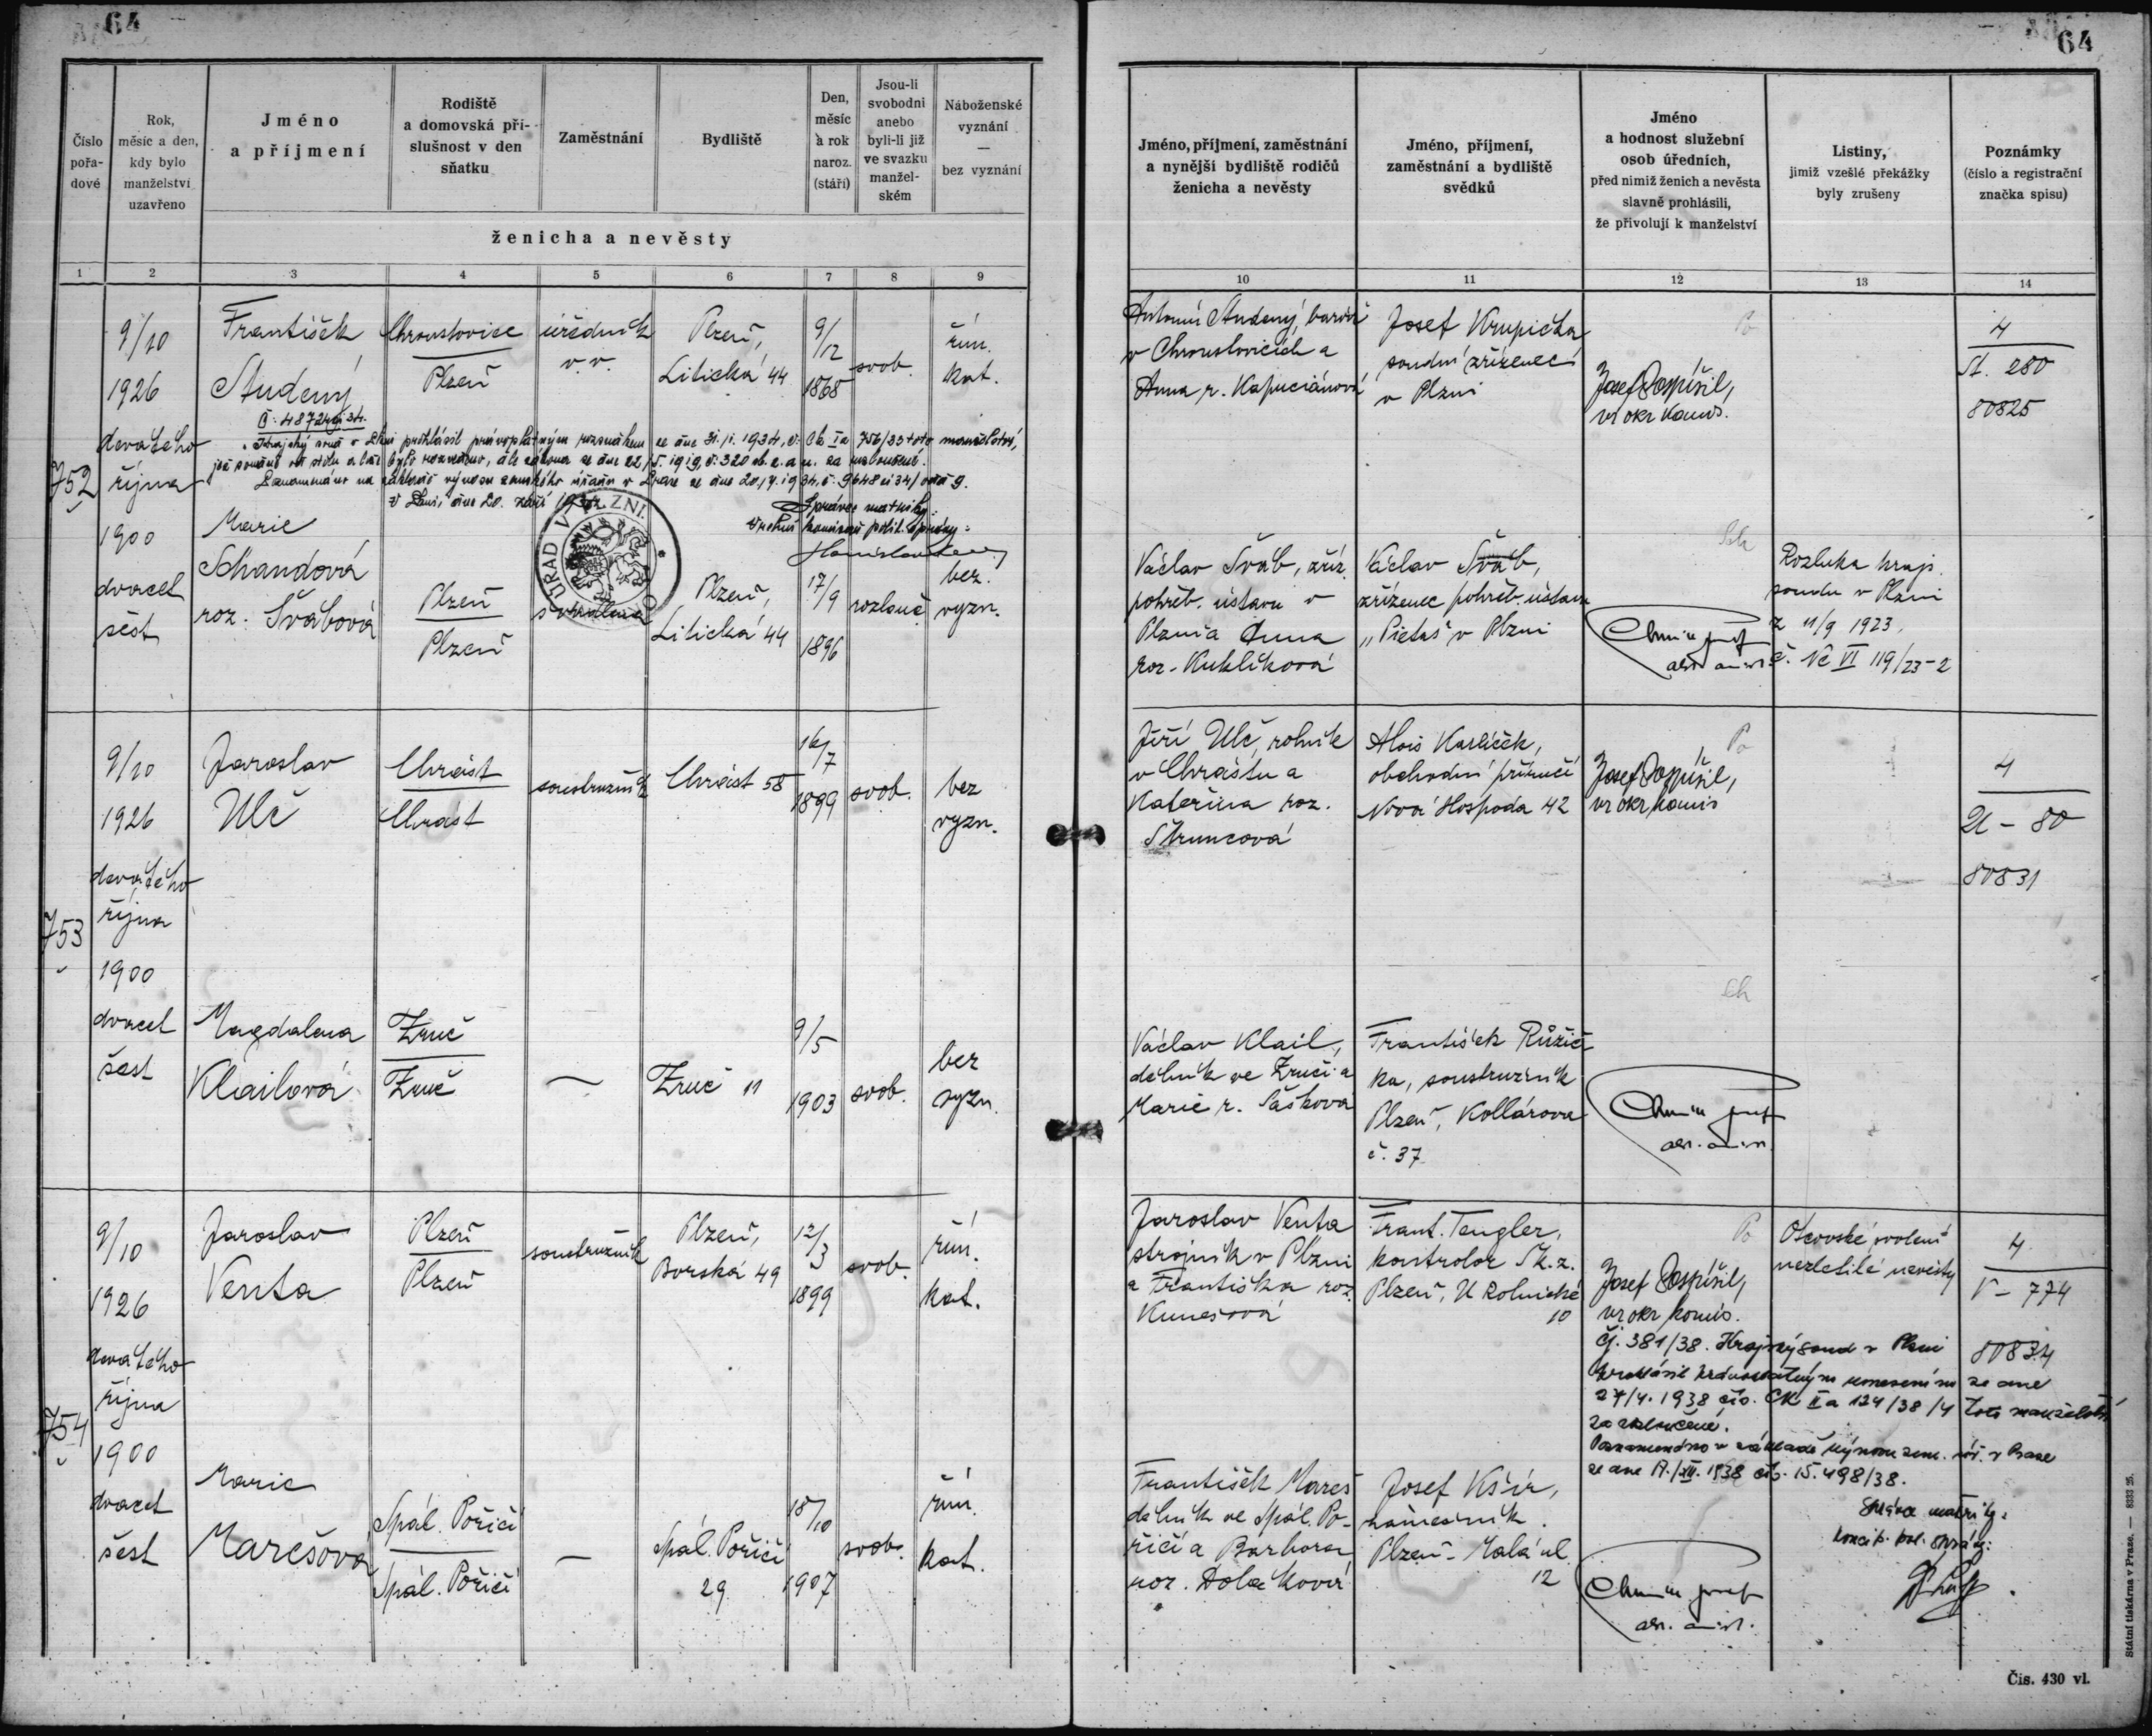 64
64
Číslo pořa-dové
Rok, měsíc a den, kdy bylo manželství uzavřeno
Jméno a příjmení
Rodiště a domovská pří-slušnost v den sňatku
Zaměstnání
Bydliště
Den, měsíc a rok naroz. (stáří)
Jsou-li svobodni anebo byli-li již ve svazku manžel-ském
Náboženské vyznání — bez vyznání
ženicha a nevěsty
Jméno, příjmení, zaměstnání a nynější bydliště rodičů ženicha a nevěsty
Jméno, příjmení, zaměstnání a bydliště svědků
Jméno a hodnost služební osob úředních, před nimiž ženich a nevěsta slavně prohlásili, že přivolují k manželství
Listiny, jimiž vzešlé překážky byly zrušeny
Poznámky (číslo a registrační značka spisu)
1 2 3 4 5 6 7 8 9 10 11 12 13 14
752
9/10
1926
devátého
října
1900
dvacet
šest
František
Studený
Chroustovice
Plzeň
úředník
v. v.
Plzeň,
Litická 44
9/12
1868
svob.
řím.
kat.
Antonín Studený,
v Chroustovicích a
Anna r. Kapuciánová
Josef Krupička
soudní zřízenec
v Plzni
Josef Pospíšil,
vr. okr. komis.
4
St. 280
80825
Krajský soud v Plzni prohlásil právoplatným rozsudkem ze dne 31./1. 1934, č. Ck Ia 756/33 toto manželství,
jež soudně od stolu a lože bylo rozvedeno, dle zákona ze dne 22/5. 1919, č. 320 sb. z. a n. za rozloučené.
Zaznamenáno na základě výnosu zemského úřadu v Praze
V Plzni, dne 20. září
Správce matriky:
ÚŘAD V PLZNI
Marie
Schandová
roz. Švábová
Plzeň
Plzeň
Plzeň,
Litická 44
17/9
1896
rozlouč.
bez.
vyzn.
Václav Šváb, zříz.
pohřeb. ústavu v
Plzni a Anna
roz. Kuklíková
Václav Šváb,
zřízenec pohřeb. ústavu
„Pietas" v Plzni
Rozluka kraj.
soudu v Plzni
z 11/9 1923,
č. Nc VI 119/23-2
753
9/10
1926
devátého
října
1900
dvacet
šest
Jaroslav
Ulč
Chrást
Chrást
soustružník
Chrást 58
16/7
1899
svob.
bez
vyzn.
Jiří Ulč, rolník
v Chrástu a
Kateřina roz.
Štruncová
Alois Karlíček,
obchodní příručí
Nová Hospoda 42
Josef Pospíšil,
vr. okr. komis
4
U - 80
80831
Magdalena
Klailová
Zruč
Zruč
—
Zruč 11
9/5
1903
svob.
bez
vyzn.
Václav Klail,
dělník ve Zruči a
Marie r. Šašková
František Růžič
ka, soustružník
Plzeň, Kollárova
č. 37
754
9/10
1926
devátého
října
1900
dvacet
šest
Jaroslav
Venta
Plzeň
Plzeň
soustružník
Plzeň,
Borská 49
12/3
1899
svob.
řím.
kat.
Jaroslav Venta
strojník v Plzni
a Františka roz.
Kunešová
Frant. Tengler,
kontrolor Šk. z.
Plzeň, U Rolnické
10
Josef Pospíšil,
vr. okr. komis.
Otcovské svolení
nezletilé nevěsty
4
V - 774
80834
Čj. 381/38. Krajský soud v Plzni
prohlásil právoplatným usnesením ze dne
27/4. 1938 čís. CK II a 124/38/4 toto manželství
za rozloučené.
Zaznamenáno v základě výnosu zem. úř. v Praze
Marie
Marešová
Spál. Poříčí
Spál. Poříčí
—
Spál. Poříčí
29
18/10
1907
svob.
řím.
kat.
František Mareš
dělník ve Spál. Po-
říčí a Barbora
roz.
Josef Kšír,
náměsíčník
Plzeň - Malá ul.
12
Správce matriky:
Čís. 430 vl.
Státní tiskárna v Praze. — 8333 25.